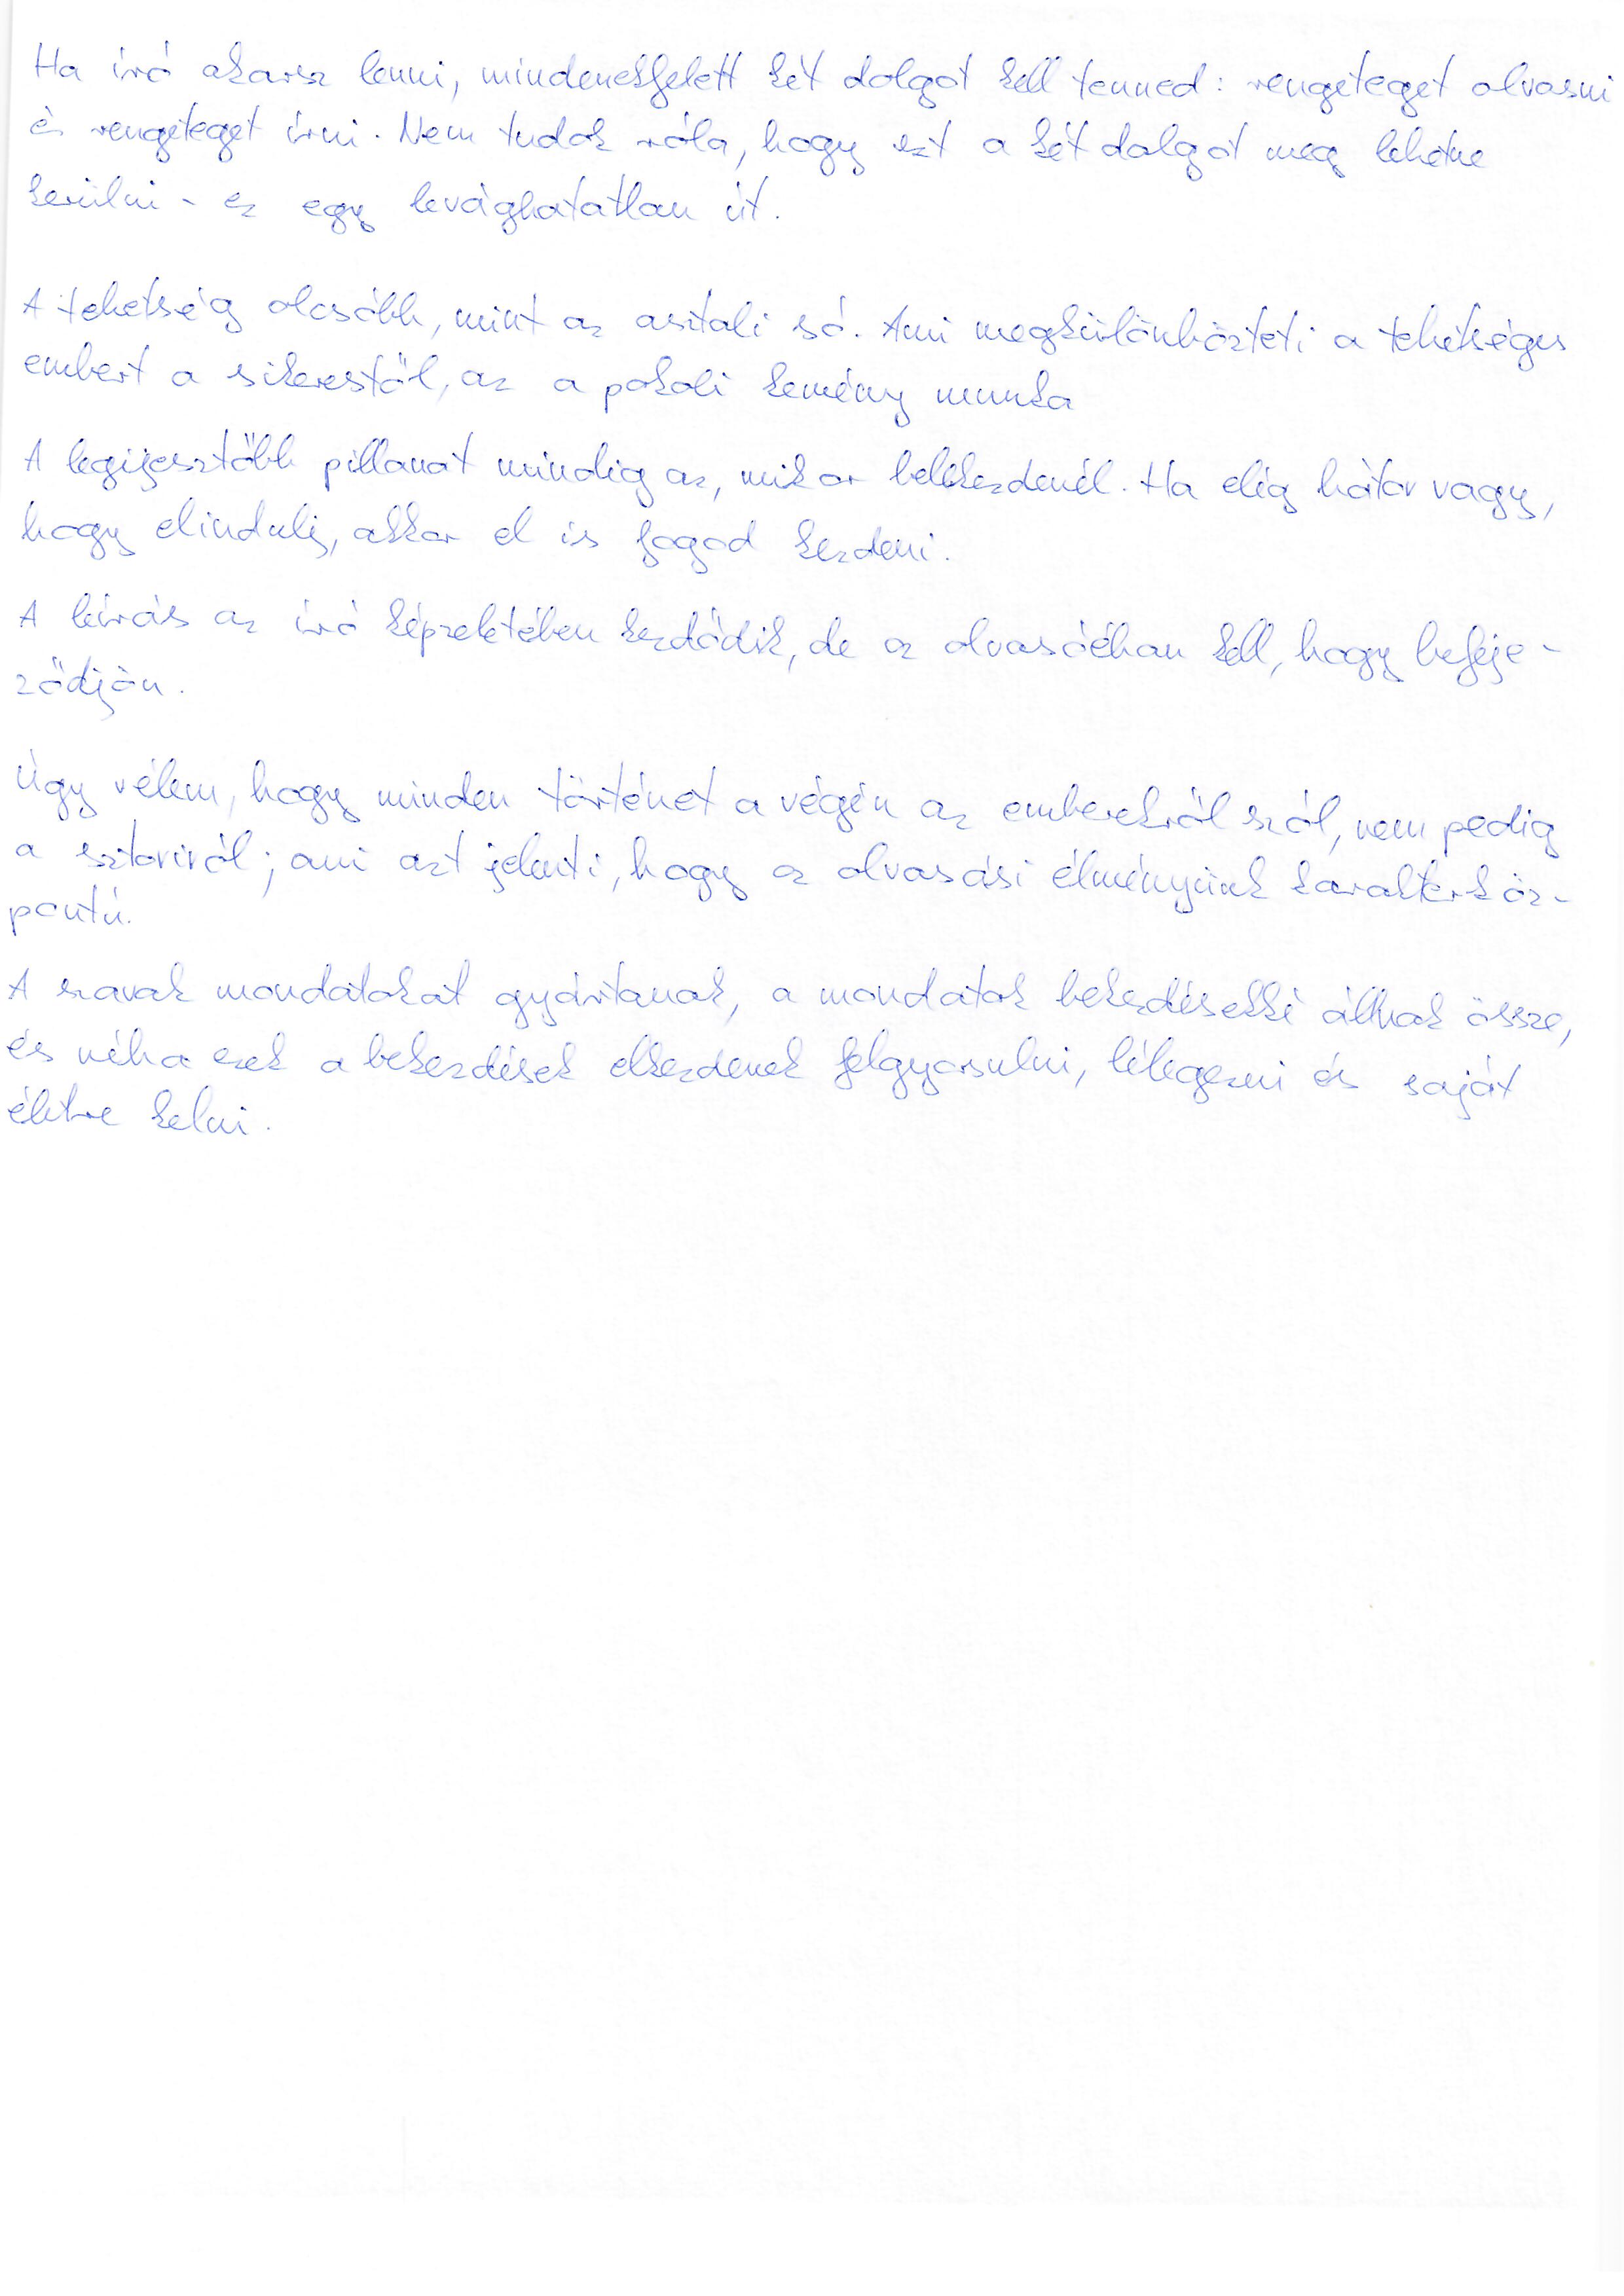 Ha író akarsz lenni, mindenekfelett két dolgot kell tenned: rengeteget olvasni
és rengeteget írni. Nem tudok róla, hogy ezt a két dolgot meg lehetne
kerülni - ez egy levághatatlan út.
A tehetség olcsóbb, mint az asztali só. Ami megkülönbözteti a tehetséges
embert a sikerestől, az a pokoli kemény munka
A legijesztőbb pillanat mindig az, mikor belekezdenél. Ha elég bátor vagy,
hogy elindulj, akkor el is fogod kezdeni.
A leírás az író képzeletében kezdődik, de az olvasóéban kell, hogy befeje-
ződjön.
Úgy vélem, hogy minden történet a végén az emberekről szól, nem pedig
a sztoriról; ami azt jelenti, hogy az olvasási élményünk karakterköz-
pontú.
A szavak mondatokat gyártanak, a mondatok bekezdésekké állnak össze,
és néha ezek a bekezdések elkezdenek felgyorsulni, lélegezni és saját
életre kelni.